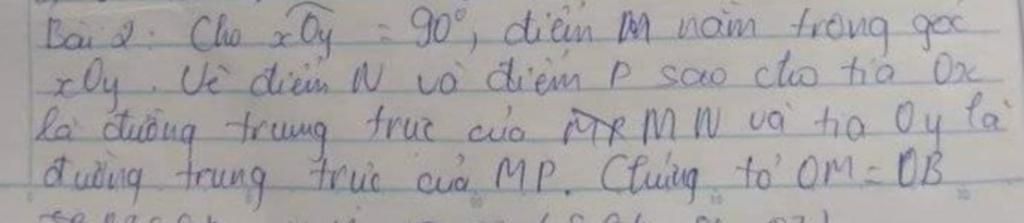 Bài 2: Cho xOy = 90°, điểm M nằm trong góc
xOy. Vẽ điểm N và điểm P sao cho tia Ox
là đường trung trực của MN và tia Oy là
đường trung trực của MP. Chứng tỏ OM = OB